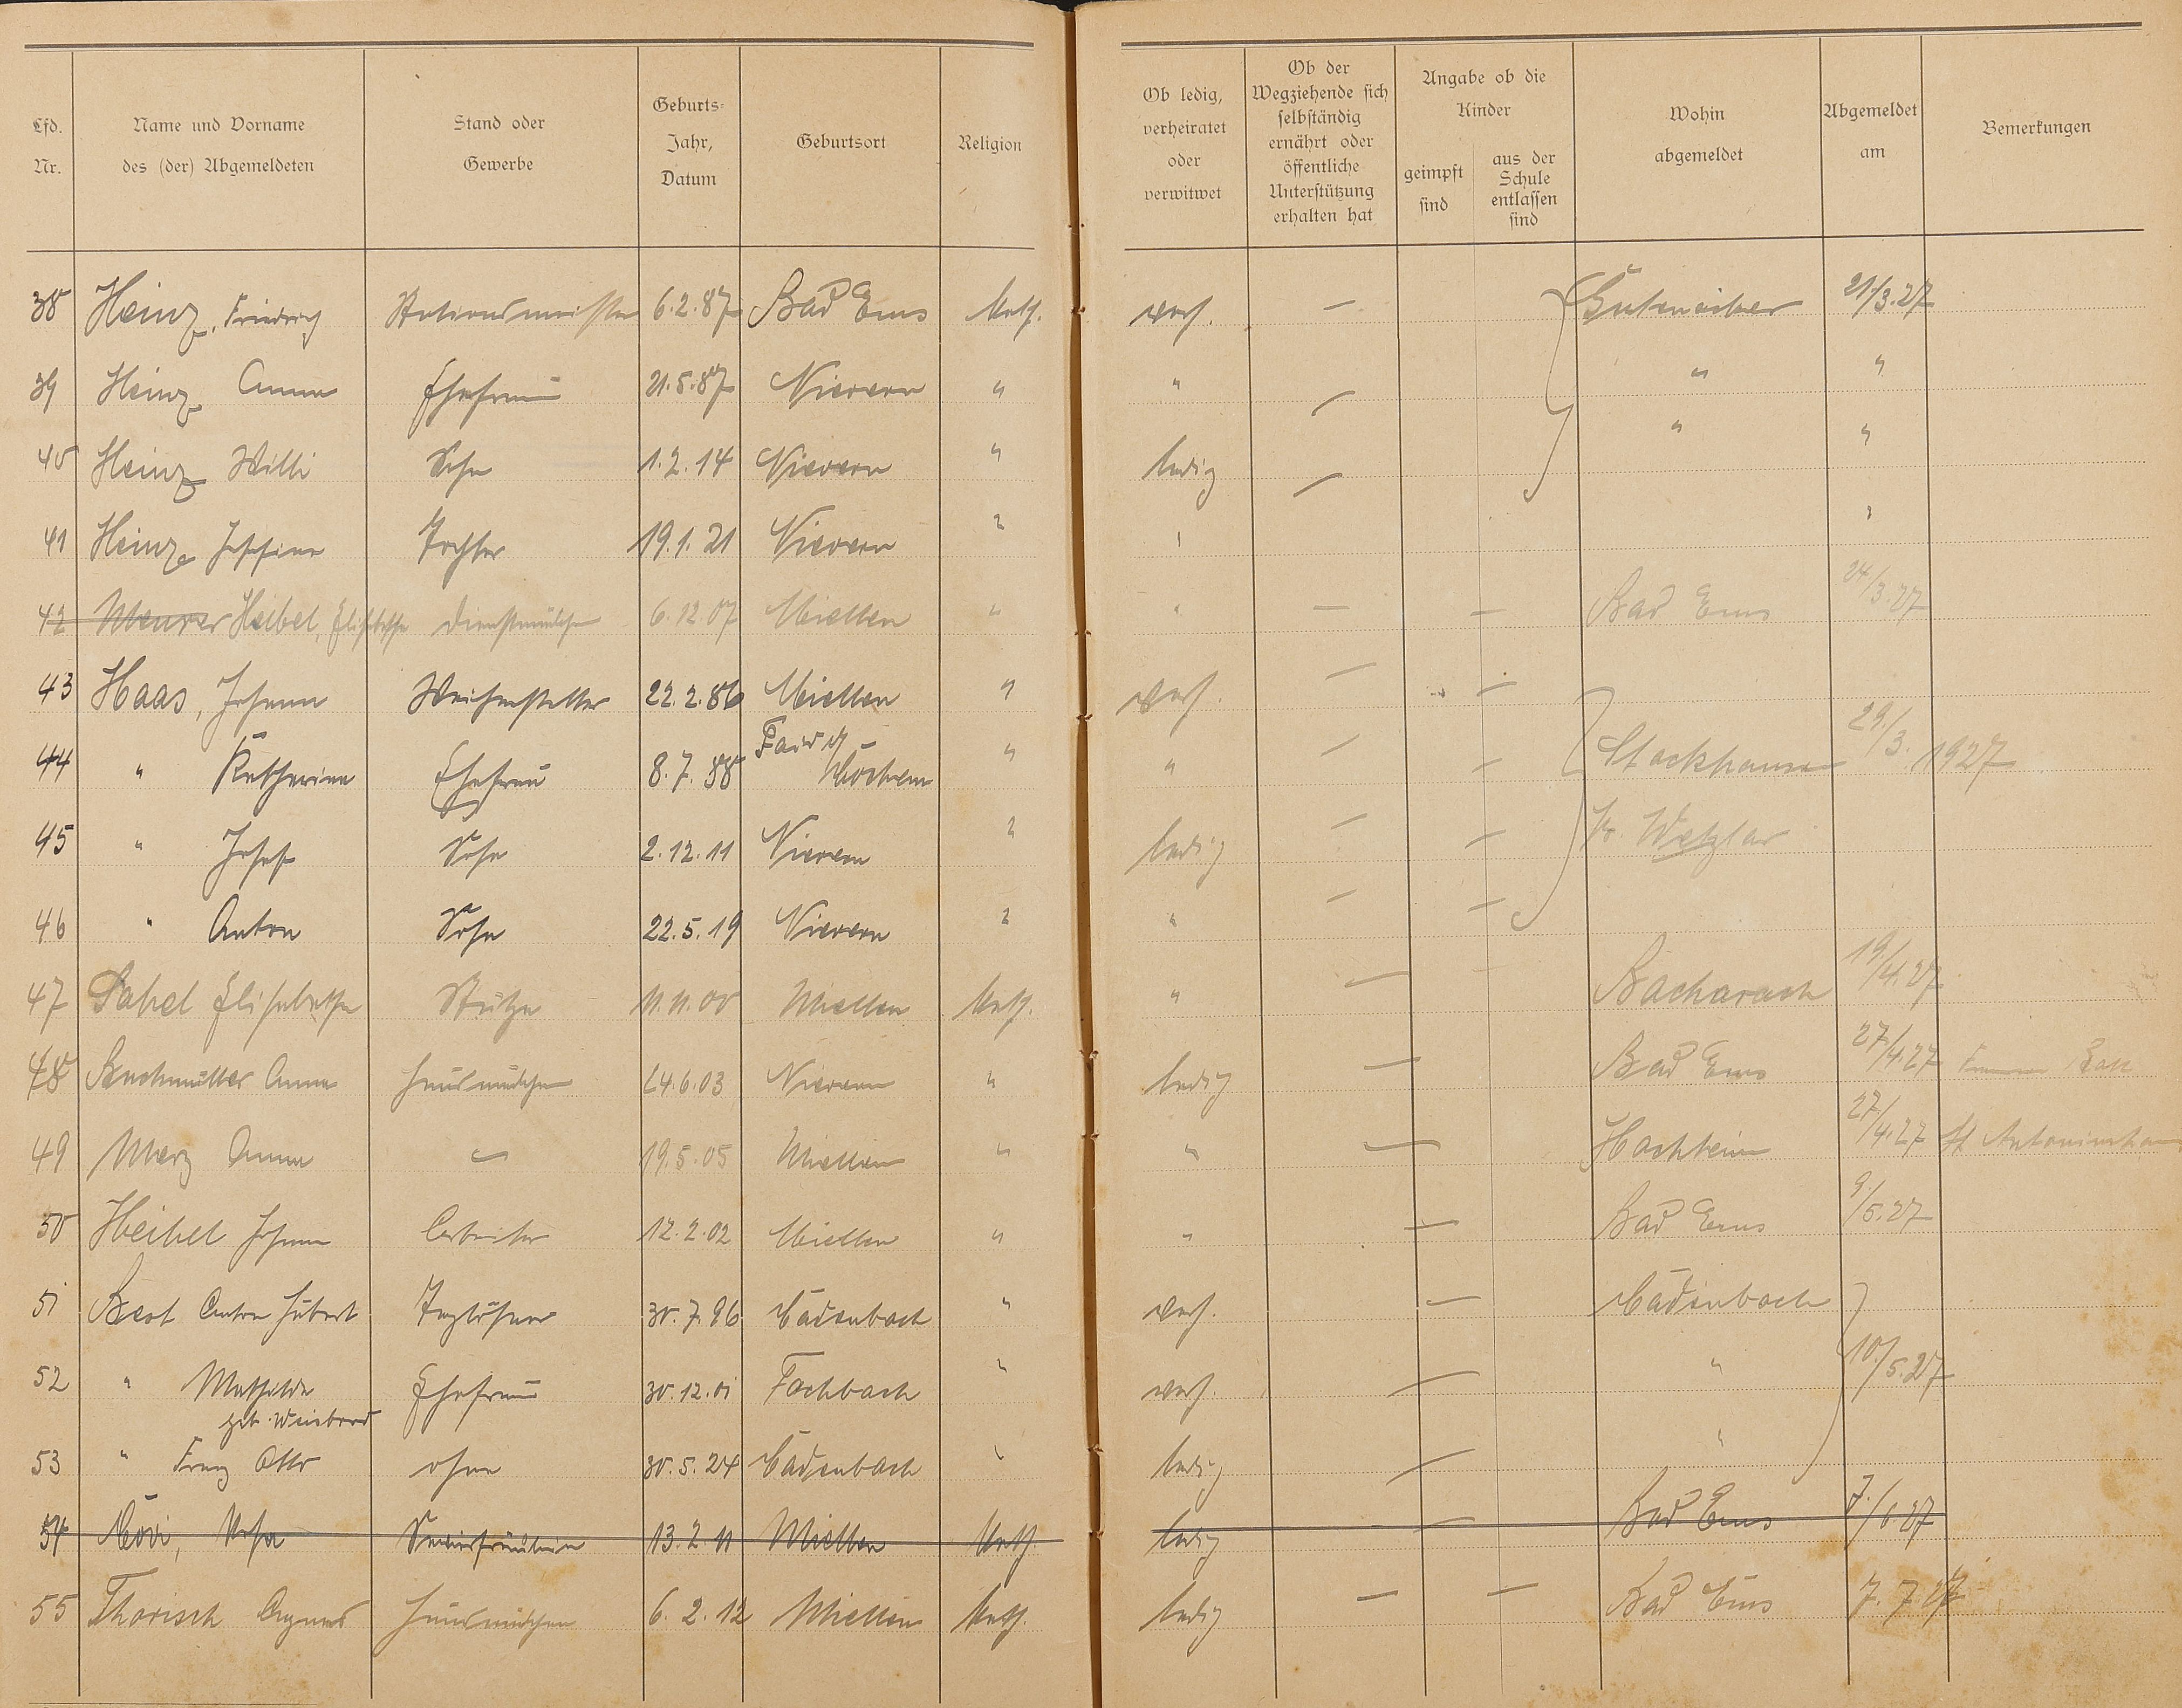 Lfd. Nr. | Name und Vorname des (der) Abgemeldeten | Stand oder Gewerbe | Geburts-Jahr, Datum | Geburtsort | Religion | Ob ledig, verheiratet oder verwitwet | Ob der Wegziehende sich selbständig ernährt oder öffentliche Unterstützung erhalten hat | Angabe ob die Kinder geimpft sind | aus der Schule entlassen sind | Wohin abgemeldet | Abgemeldet am | Bemerkungen
38 Heinz, Friedrich Stationsmeister 6.2.87 Bad Ems kath. verh. — 21/3.27
39 Heinz Anna Ehefrau 21.5.87 Nievern " " — " "
40 Heinz Willi Sohn 1.2.14 Nievern " ledig — " "
41 Heinz Josefine Tochter 19.1.21 Nievern " " "
42 Meurer Heibel, Elisabetha Dienstmädchen 6.12.07 Miellen " " — — Bad Ems 24/3.27
43 Haas, Johann Weichensteller 22.2.86 Miellen " verh. — —
44 " Katharina Ehefrau 8.7.88 Faid Cochem " " — — Stockhausen 29./3. 1927
45 " Josef Sohn 2.12.11 Nievern " ledig — — Kr. Wetzlar
46 " Anton Sohn 22.5.19 Nievern " " — —
47 Sabel Elisabetha Stütze 11.11.00 Miellen kath. " — Bacharach 19/4.27
48 Anna Hausmädchen 24.6.03 Nievern " ledig — Bad Ems 27/4.27
49 Merz Anna — 19.5.05 Miellen " " — Hochheim 27/4.27 St Antoniushaus
50 Heibel Johann Arbeiter 12.2.02 Miellen " " — Bad Ems 9/5.27
51 Best Anton Hubert Taglöhner 30.7.96 Cadenbach " verh. — Cadenbach
52 " Mathilde Ehefrau 30.12.01 Fachbach " verh. — " 10./5.27
geb. Weisbrod
53 " Franz Otto ohne 30.5.24 Cadenbach " ledig — "
54 Servierfräulein 13.2.11 Miellen kath ledig — Bad Ems 7./6.27
55 Thorisch Agnes Hausmädchen 6.2.12 Miellen kath. ledig — — Bad Ems 7.7.27